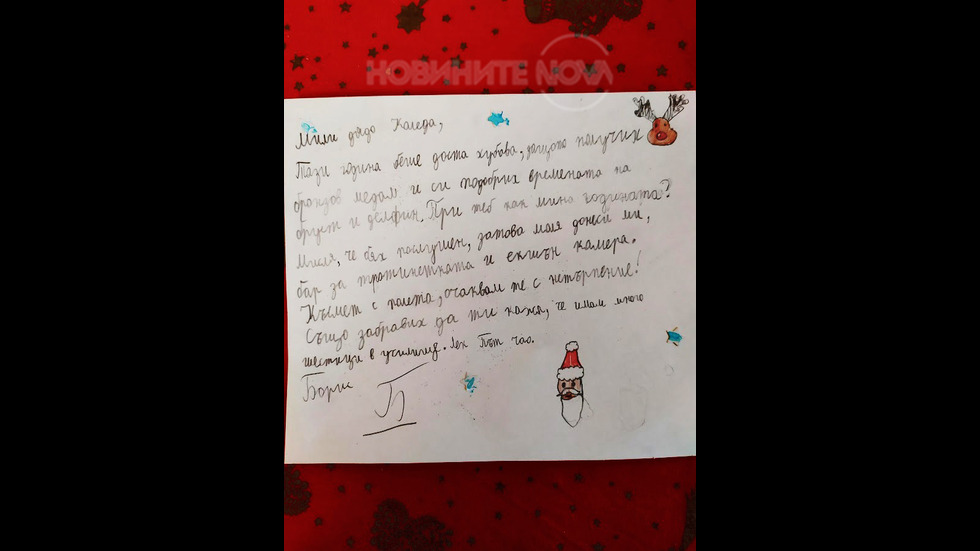 НОВИНИТЕ NOVA
Мили дядо Коледа,
Тази година беше доста хубава, защото получих
бронзов медал и си подобрих времената на
бруст и делфин. При теб как мина годината?
Мисля, че бях послушен, затова моля донеси ми,
бар за тротинетката и екшън камера.
Късмет с полета, очаквам те с нетърпение!
Също забравих да ти кажа, че имам много
шестици в училище. Лек Път чао.
Борис
Б